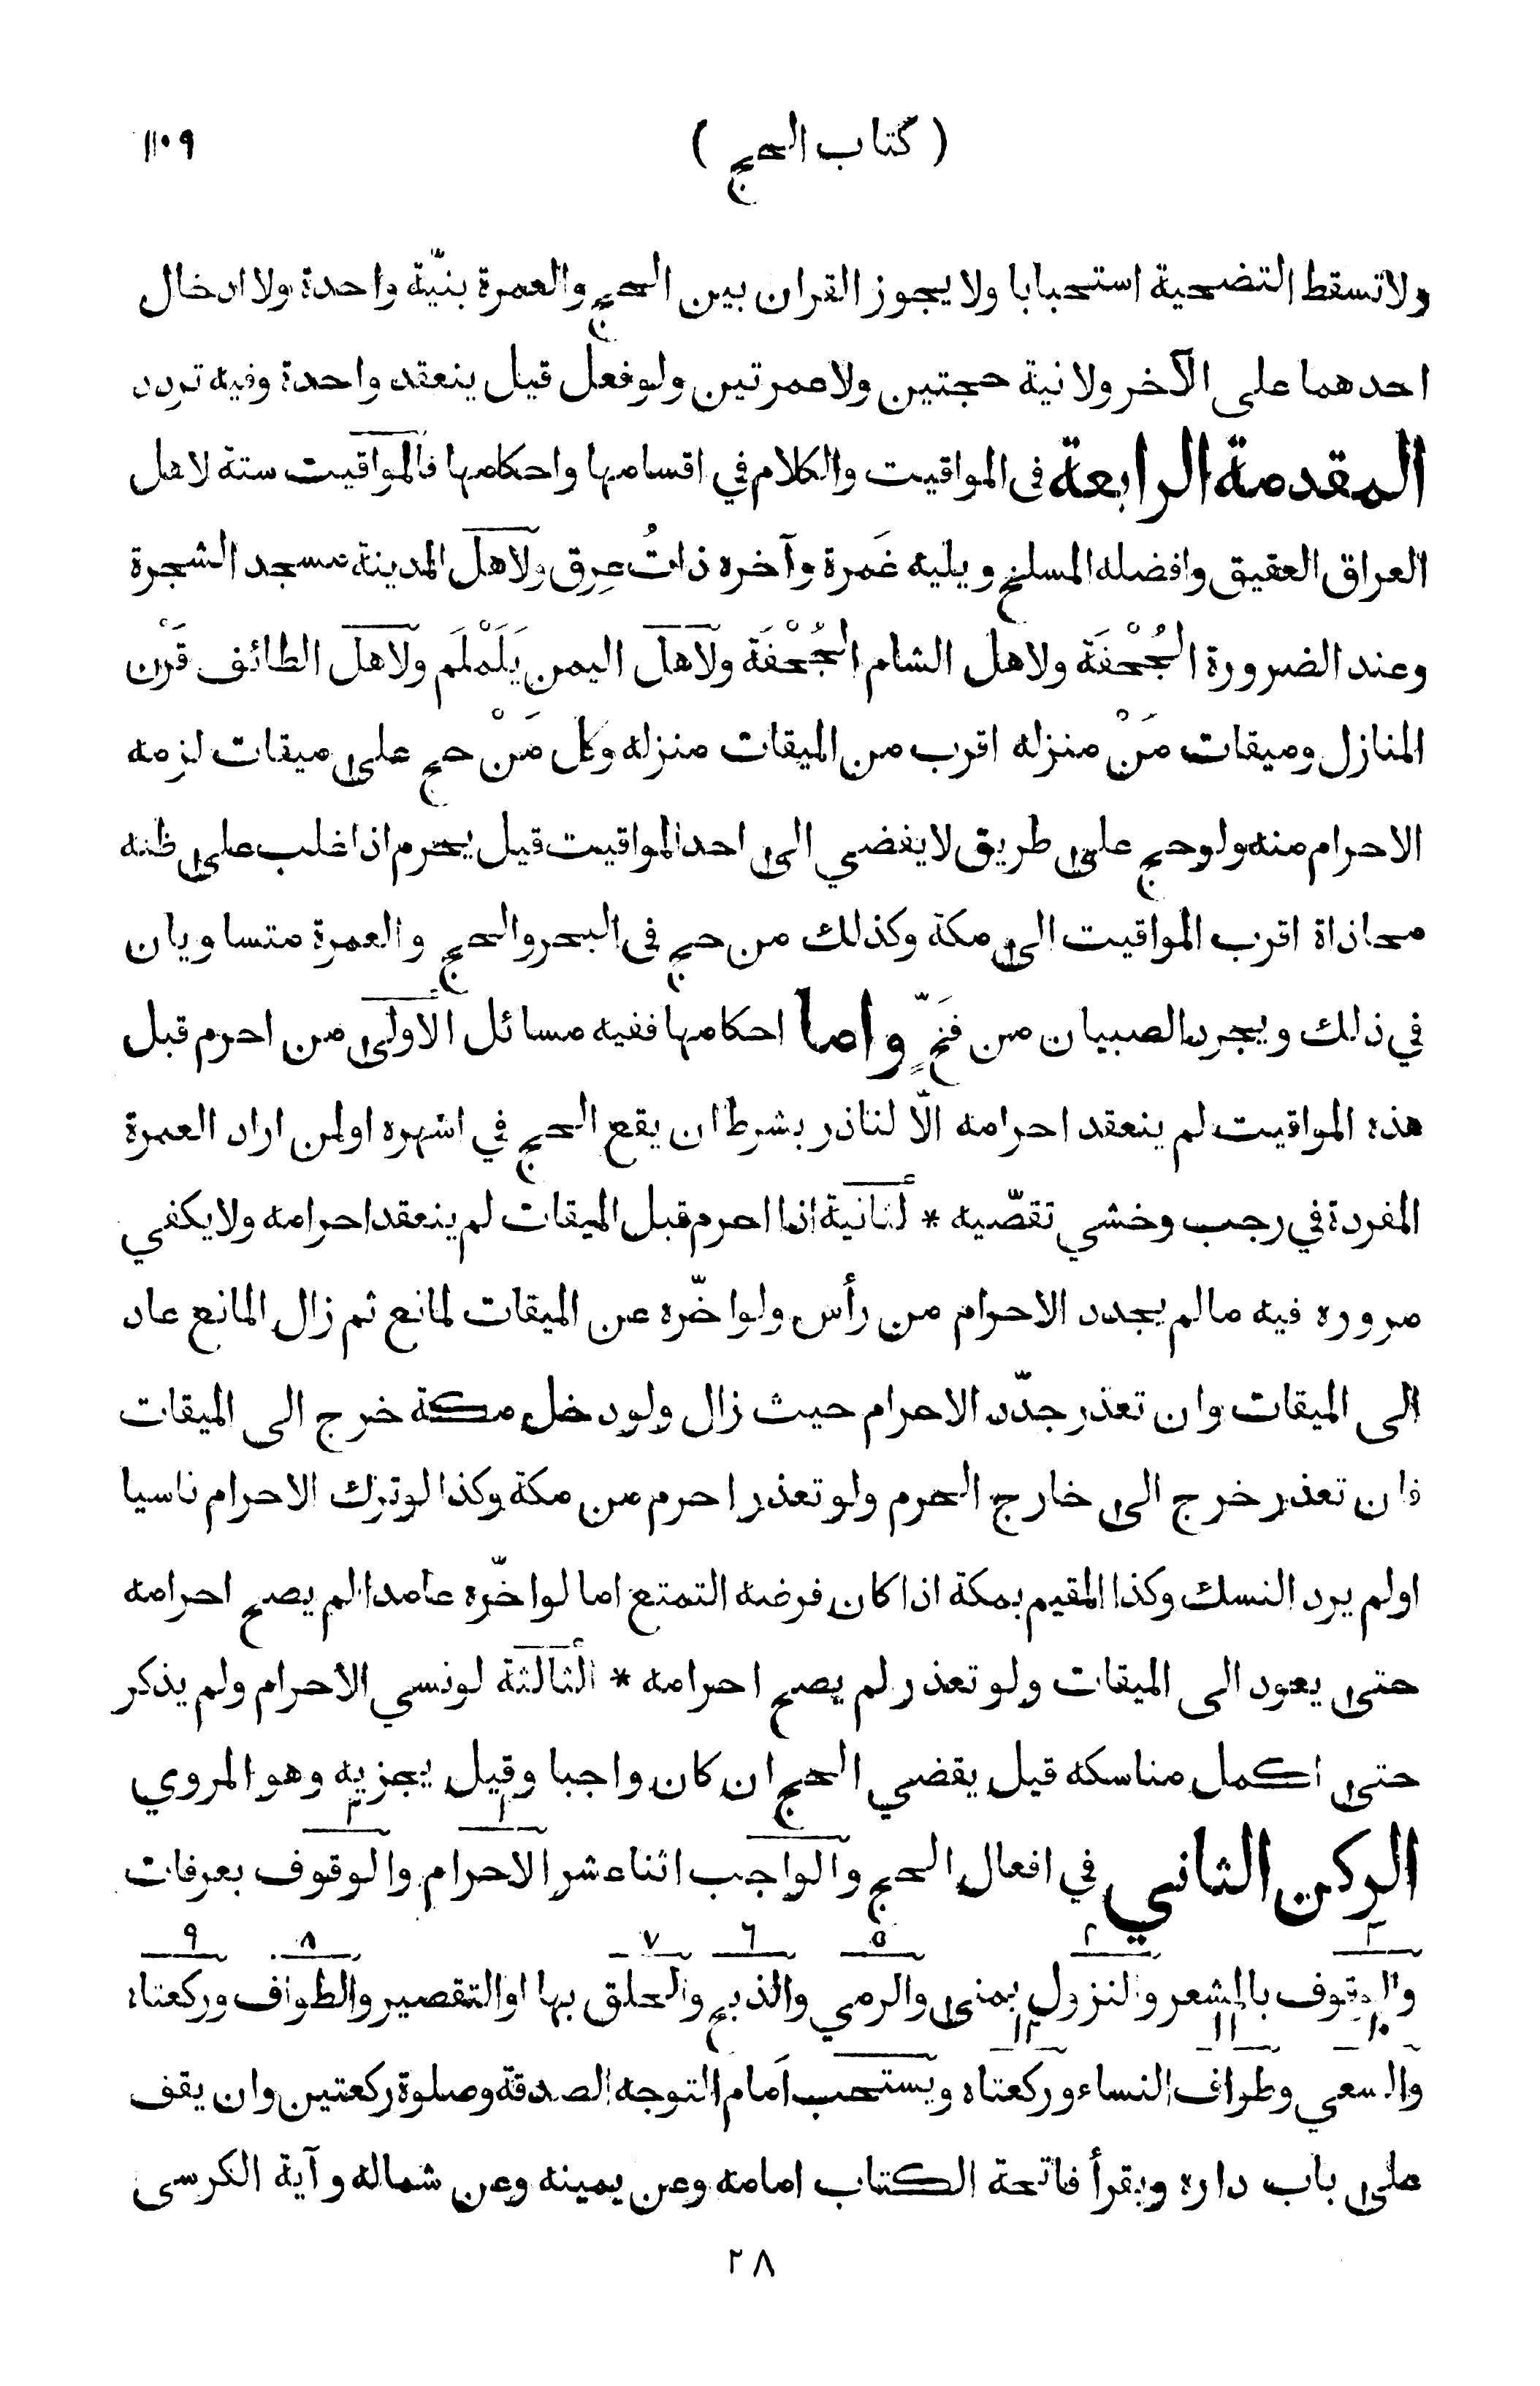 ( كتاب الحج ) ١٠٩
ولا تسقط التضحية استحبابا ولا يجوز القران بين الحج والعمرة بنيّة واحدة ولا ادخال
احدهما على الآخر ولا نية حجتين ولا عمرتين ولو فعل قيل ينعقد واحدة وفيه تردد
المقدمة الرابعة فى المواقيت والكلام في اقسامها واحكامها فالمواقيت ستة لاهل
العراق العقيق وافضله المسلخ ويليه غَمرة وآخره ذاتُ عِرق ولاهل المدينة مسجد الشجرة
وعند الضرورة الجُحْفَة ولاهل الشام الجُحْفَة ولاهل اليمن يَلَمْلَم ولاهل الطائف قَرْن
المنازل وميقات مَنْ منزله اقرب من الميقات منزله وكل مَنْ حج على ميقات لزمه
الاحرام منه ولو حج على طريق لا يفضي الى احد المواقيت قيل يحرم اذا غلب على ظنه
محاذاة اقرب المواقيت الى مكة وكذلك من حج فى البحر والحج والعمرة متساويان
في ذلك ويجرد الصبيان من فَخٍّ واما احكامها ففيه مسائل الأولى من احرم قبل
هذه المواقيت لم ينعقد احرامه الّا لناذر بشرط ان يقع الحج في اشهره او لمن اراد العمرة
المفردة في رجب وخشي تقصّيه * لثانية اذا احرم قبل الميقات لم ينعقد احرامه ولا يكفي
مروره فيه مالم يجدد الاحرام من رأس ولو اخّره عن الميقات لمانع ثم زال المانع عاد
الى الميقات وان تعذر جدّد الاحرام حيث زال ولو دخل مكة خرج الى الميقات
فان تعذر خرج الى خارج الحرم ولو تعذر احرم من مكة وكذا لو ترك الاحرام ناسيا
او لم يرد النسك وكذا المقيم بمكة اذا كان فرضه التمتع اما لو اخّره عامدا لم يصح احرامه
حتى يعود الى الميقات ولو تعذر لم يصح احرامه * الثالثة لو نسي الاحرام ولم يذكر
حتى اكمل مناسكه قيل يقضي الحج ان كان واجبا وقيل يجزيه وهو المروي
الركن الثاني في افعال الحج والواجب اثناعشر الاحرام والوقوف بعرفات
والوقوف بالمشعر والنزول بمنى والرمي والذبح والحلق بها او التقصير والطواف وركعتاه
والسعي وطواف النساء وركعتاه ويستحب اَمام التوجه الصدقة وصلوة ركعتين وان يقف
على باب داره ويقرأ فاتحة الكتاب امامه وعن يمينه وعن شماله وآية الكرسى
٢٨